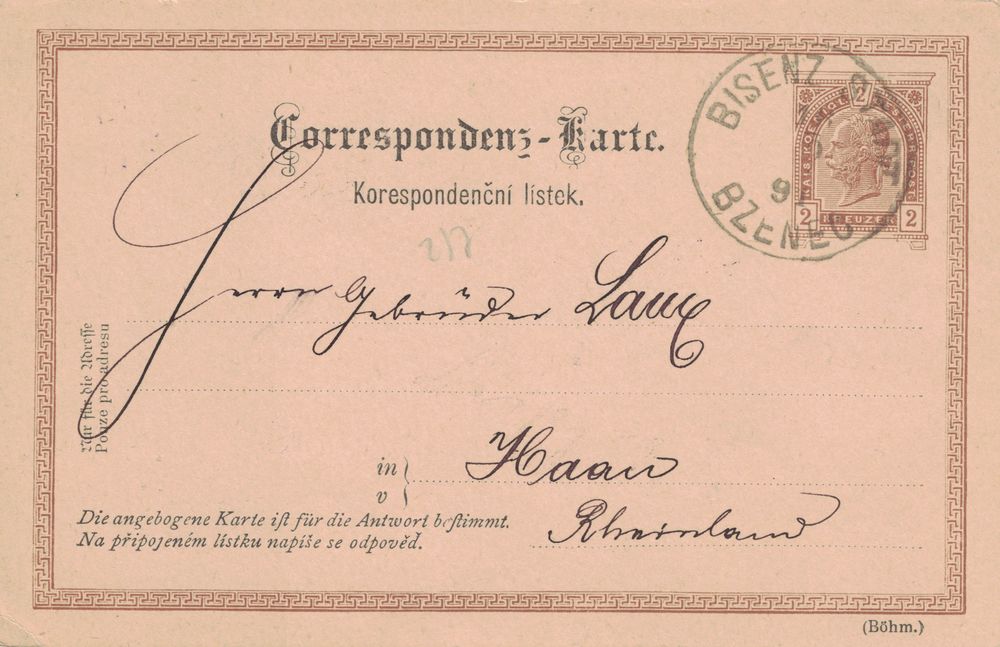 BISENZ STADT
BZENEC
9
2
KAIS. KOENIGL. OESTERR. POST
2 KREUZER 2
Correspondenz-Karte.
Korespondenční lístek.
2/8
Herrn Gebrüder Laux
Nur für die Adresse
Pouze pro adresu
in
v
Haan
Die angebogene Karte ist für die Antwort bestimmt.
Na připojeném lístku napíše se odpověď.
Rheinland
(Böhm.)